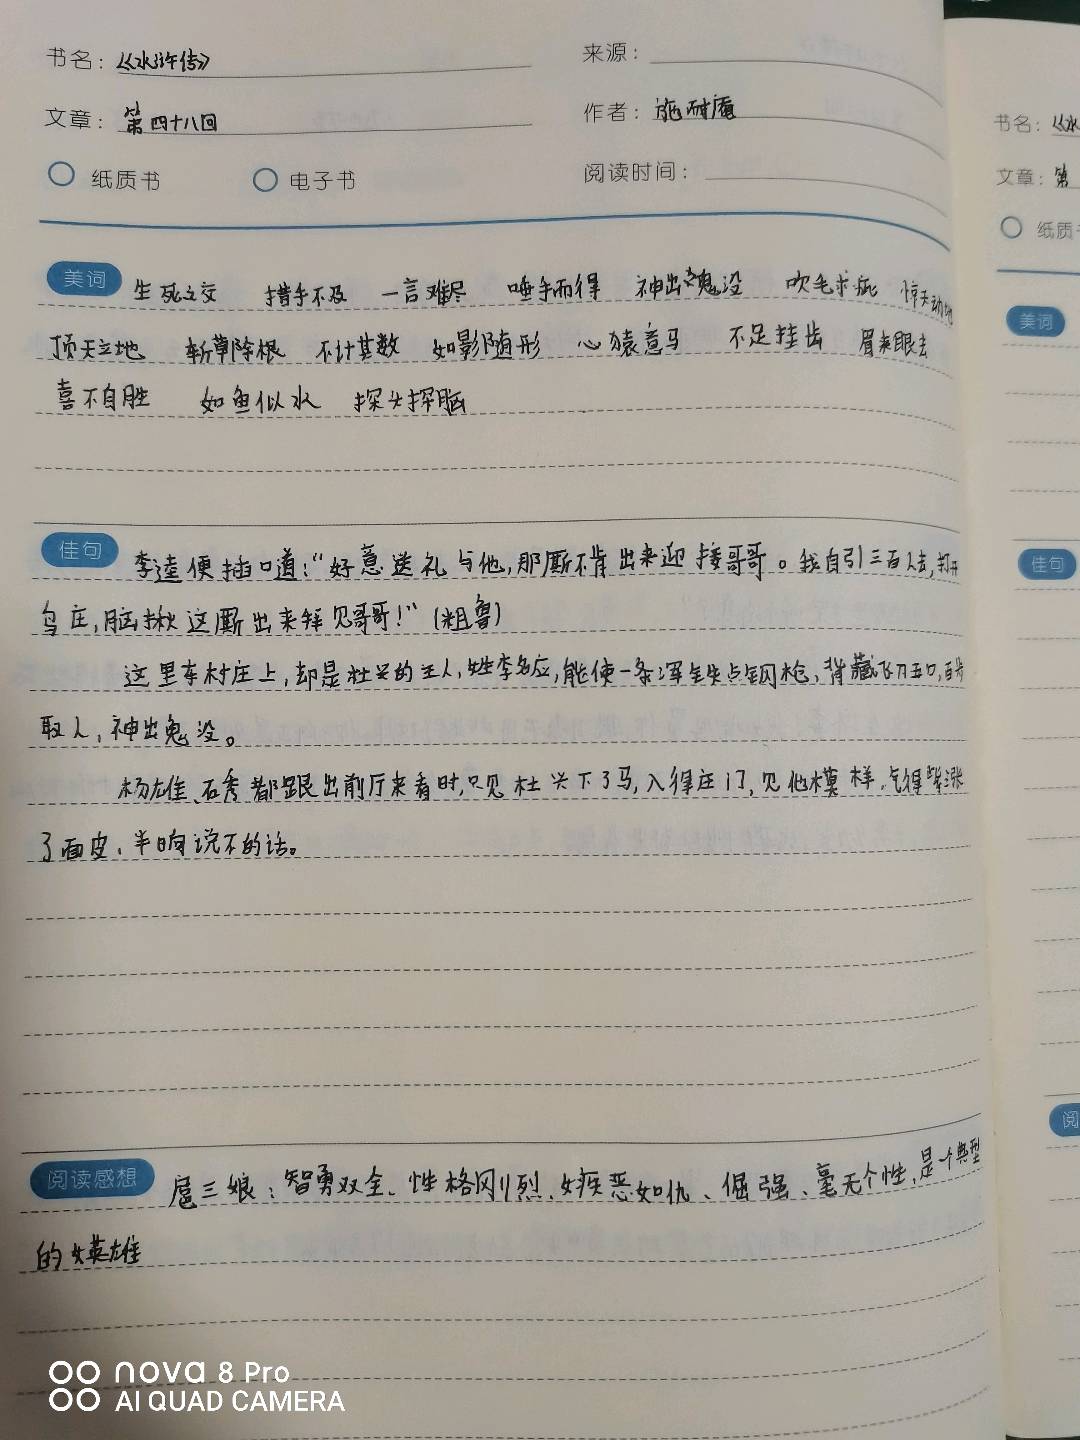 书名：《水浒传》
来源：
文章：第四十八回
作者：施耐庵
纸质书
电子书
阅读时间：
美词 生死之交 措手不及 一言难尽 唾手而得 神出鬼没 吹毛求疵 惊天动地
顶天立地 斩草除根 不计其数 如影随形 心猿意马 不足挂齿 眉来眼去
喜不自胜 如鱼似水 探头探脑
佳句 李逵便插口道："好意送礼与他，那厮不肯出来迎接哥哥。我自引三百人去，打开
鸟庄，脑揪这厮出来拜见哥哥！"（粗鲁）
这里东村庄上，却是杜兴的主人，姓李名应，能使一条浑铁点钢枪，背藏飞刀五口，百步
取人，神出鬼没。
杨雄、石秀都跟出前厅来看时，只见杜兴下了马，入得庄门，见他模样，气得紫涨
了面皮，半晌说不的话。
阅读感想 扈三娘：智勇双全、性格刚烈、嫉恶如仇、倔强、毫无个性，是一个典型
的女英雄
书名：《水
文章：第
纸质
美词
佳句
阅
nova 8 Pro
AI QUAD CAMERA